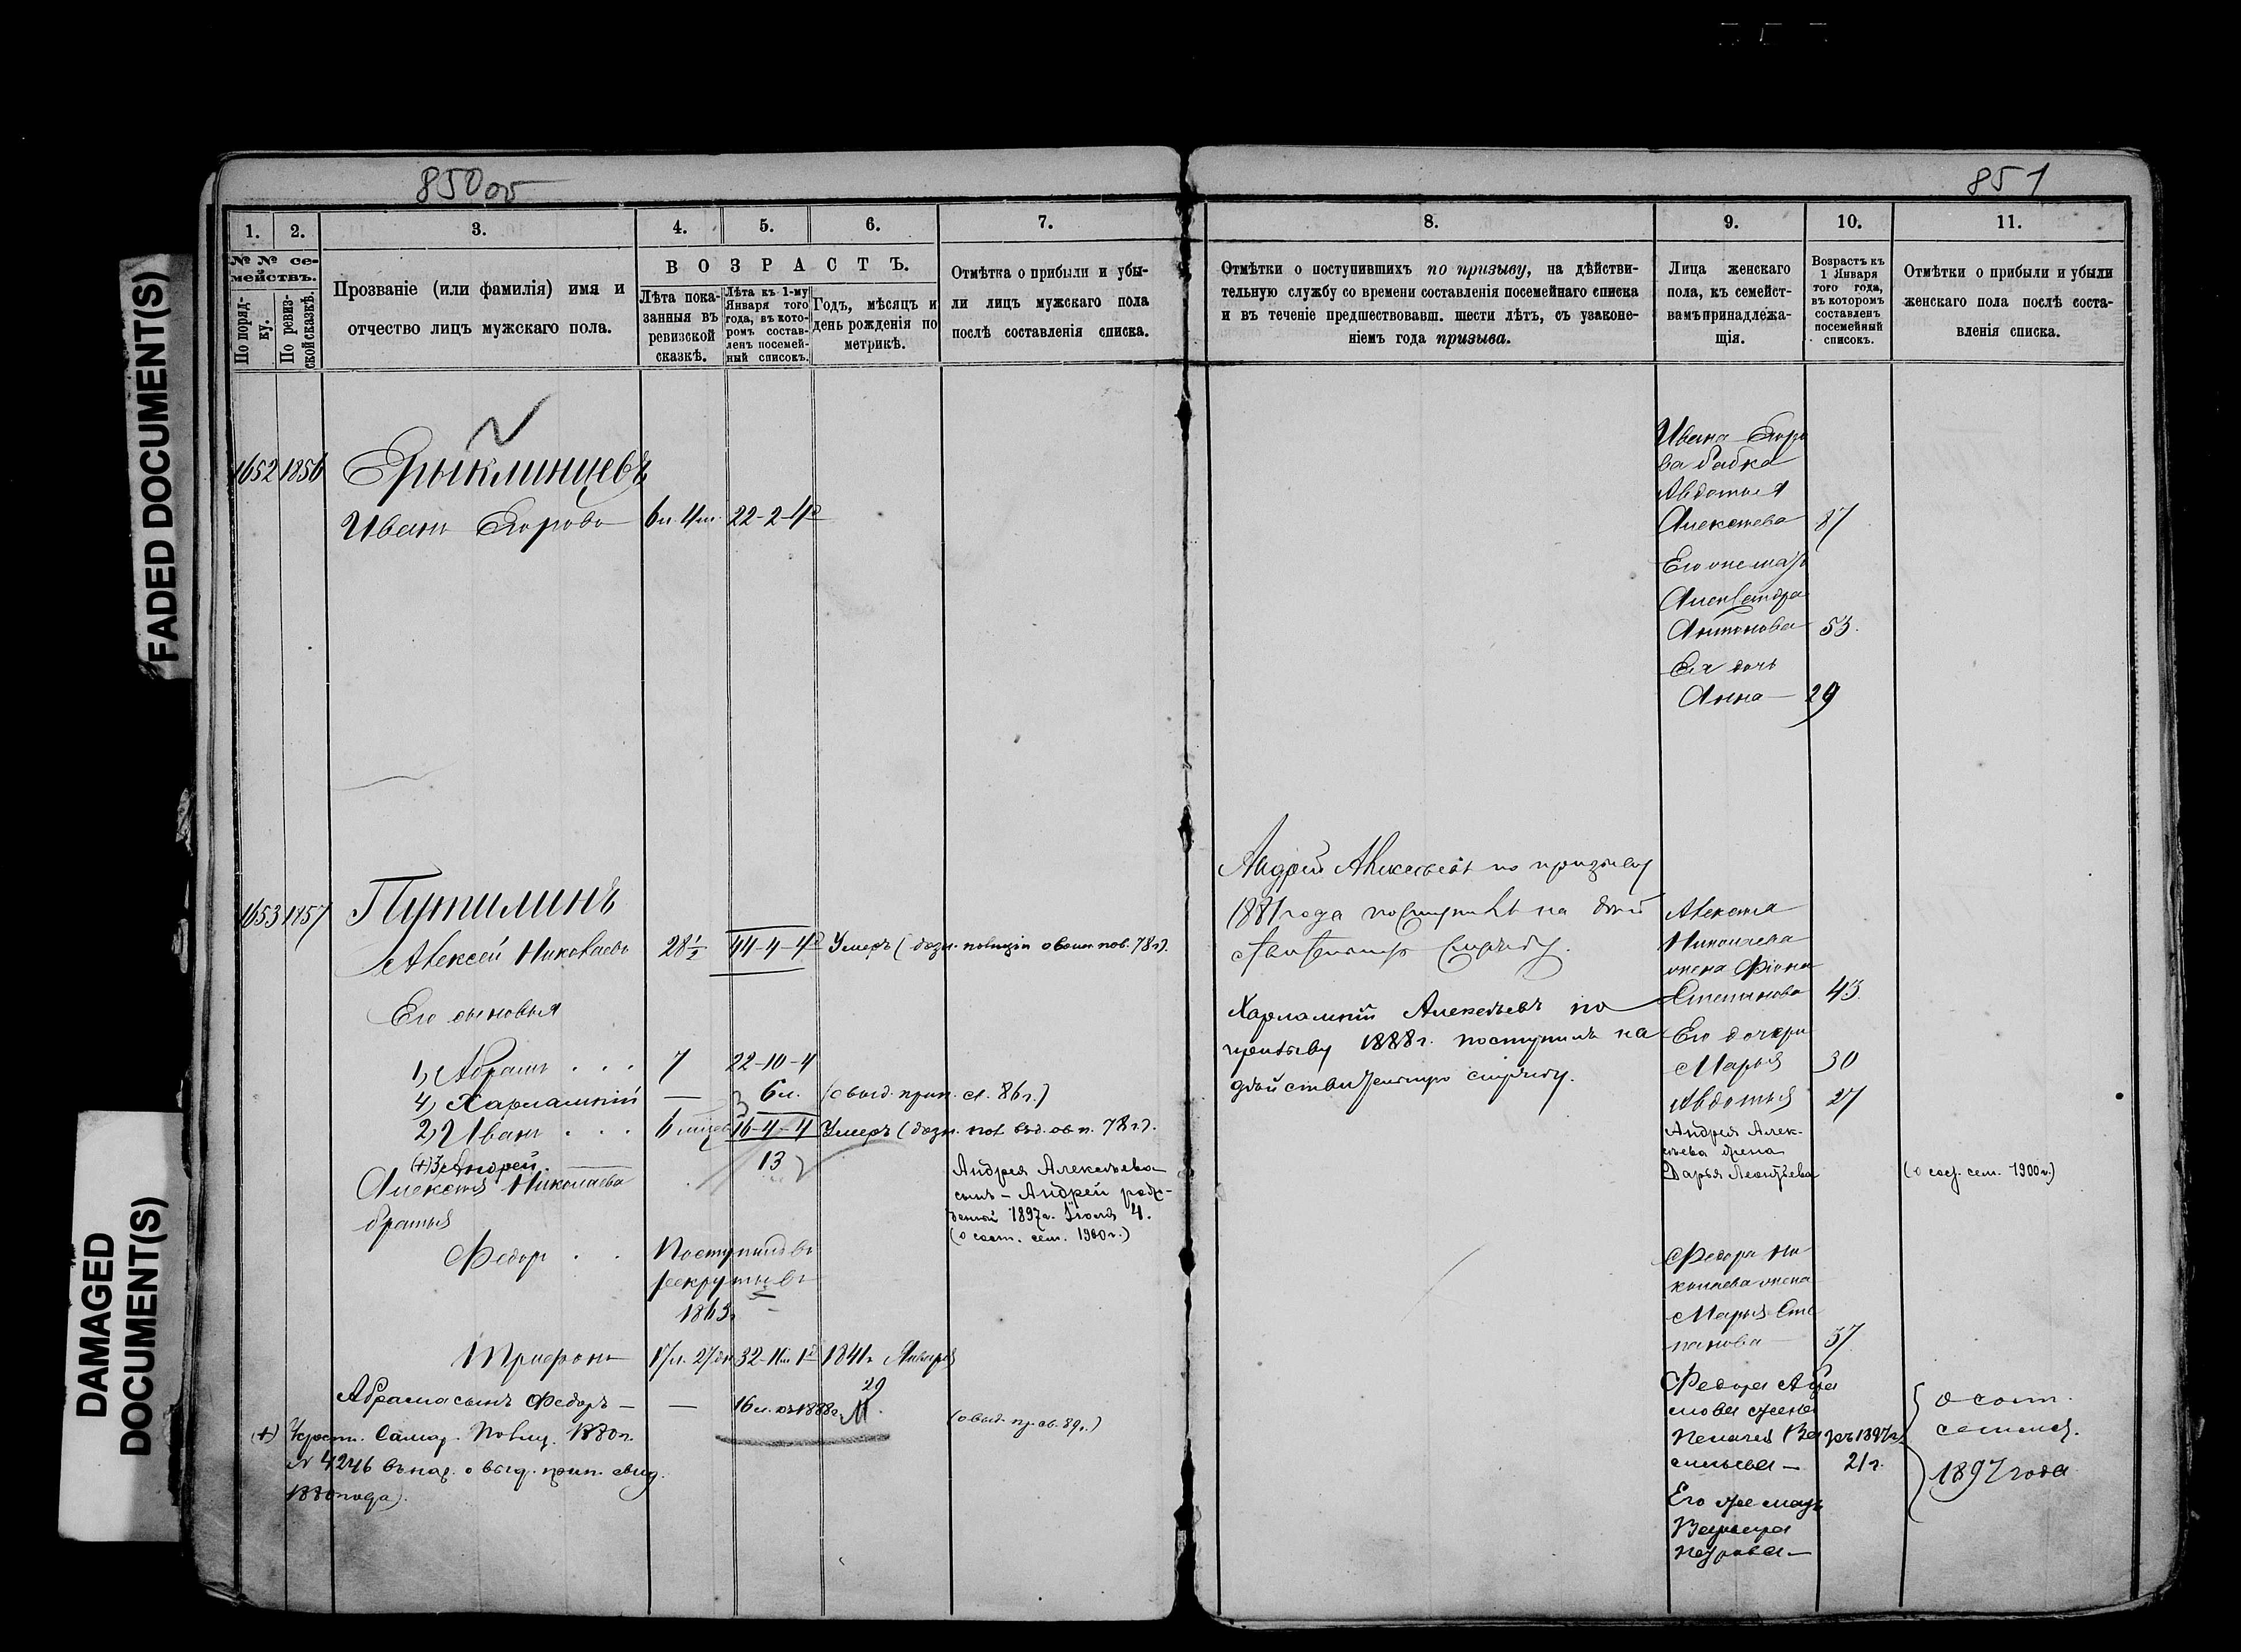 850 об
851
FADED DOCUMENT(S)
DAMAGED
DOCUMENT(S)
1.
2.
3.
4.
5.
6.
7.
№ № се-
мействъ.
По поряд-
ку.
По ревиз-
ской сказкѣ.
Прозваніе (или фамилія) имя и
отчество лицъ мужскаго пола.
ВОЗРАСТЪ.
Лѣта пока-
занныя въ
ревизской
сказкѣ.
Лѣта къ 1-му
Января того
года, въ кото-
ромъ состав-
ленъ посемей-
ный списокъ.
Годъ, мѣсяцъ и
день рожденія по
метрикѣ.
Отмѣтка о прибыли и убы-
ли лицъ мужскаго пола
послѣ составленія списка.
1652 1856 Ерыклинцевъ
Иванъ Егоровъ 22-2-4
1653 1857 Путилинъ
Алексей Николаевъ 28 1/2 44-4-4 Умеръ
Его сыновья
1) Абрамъ . . . 7 22-10-4
4) Харлампій — 6 л. (о выд. прип. с. 86 г.)
2) Иванъ . . . 16-4-4 Умеръ
(+) 3 Андрей. 13
Андрея Алексѣева
сынъ – Андрей рож-
денный 1897 г. Іюля 4.
(о сост. сем. 1900 г.)
Алексея Николаева
братья
Федоръ . . Поступилъ въ
рекруты въ
Трифонъ 1841 г. Января
29
Абрама сынъ Федоръ — — 16 л. къ 1888 г.
(+) Укрест. Самар.
№ 4246
1880 года).
8.
9.
10.
11.
Отмѣтки о поступившихъ по призыву, на дѣйстви-
тельную службу со времени составленія посемейнаго списка
и въ теченіе предшествовавш. шести лѣтъ, съ узаконе-
ніемъ года призыва.
Лица женскаго
пола, къ семейст-
вамъ принадлежа-
щія.
Возрастъ къ
1 Января
того года,
въ которомъ
составленъ
посемейный
списокъ.
Отмѣтки о прибыли и убыли
женскаго пола послѣ соста-
вленія списка.
Ивана Егоро
ва бабка
Авдотья
Алексеева 87
Его же мать
Александра
Антонова 53.
Ея дочь
Анна — 29
Андрей Алексеевъ по призыву
1881 года поступилъ на дѣй
ствительную службу.
Харлампій Алексѣевъ по
призыву 1888 г. поступилъ на
дѣйствительную службу.
Алексея
Николаева
жена Фіона
Степанова 43
Его дочери
Марья 30
Авдотья 27
Андрея Алек-
сѣева жена
Дарья Леонтьева (о сост. сем. 1900 г.)
Федора Ни-
колаева жена
Марья Сте
панова 37
Федора Абра
мова жена
Пелагея Ва къ 1897 г.
сильева — 21 г.
о сост.
семьи.
1897 года
Его же мать
Варвара
Петрова —